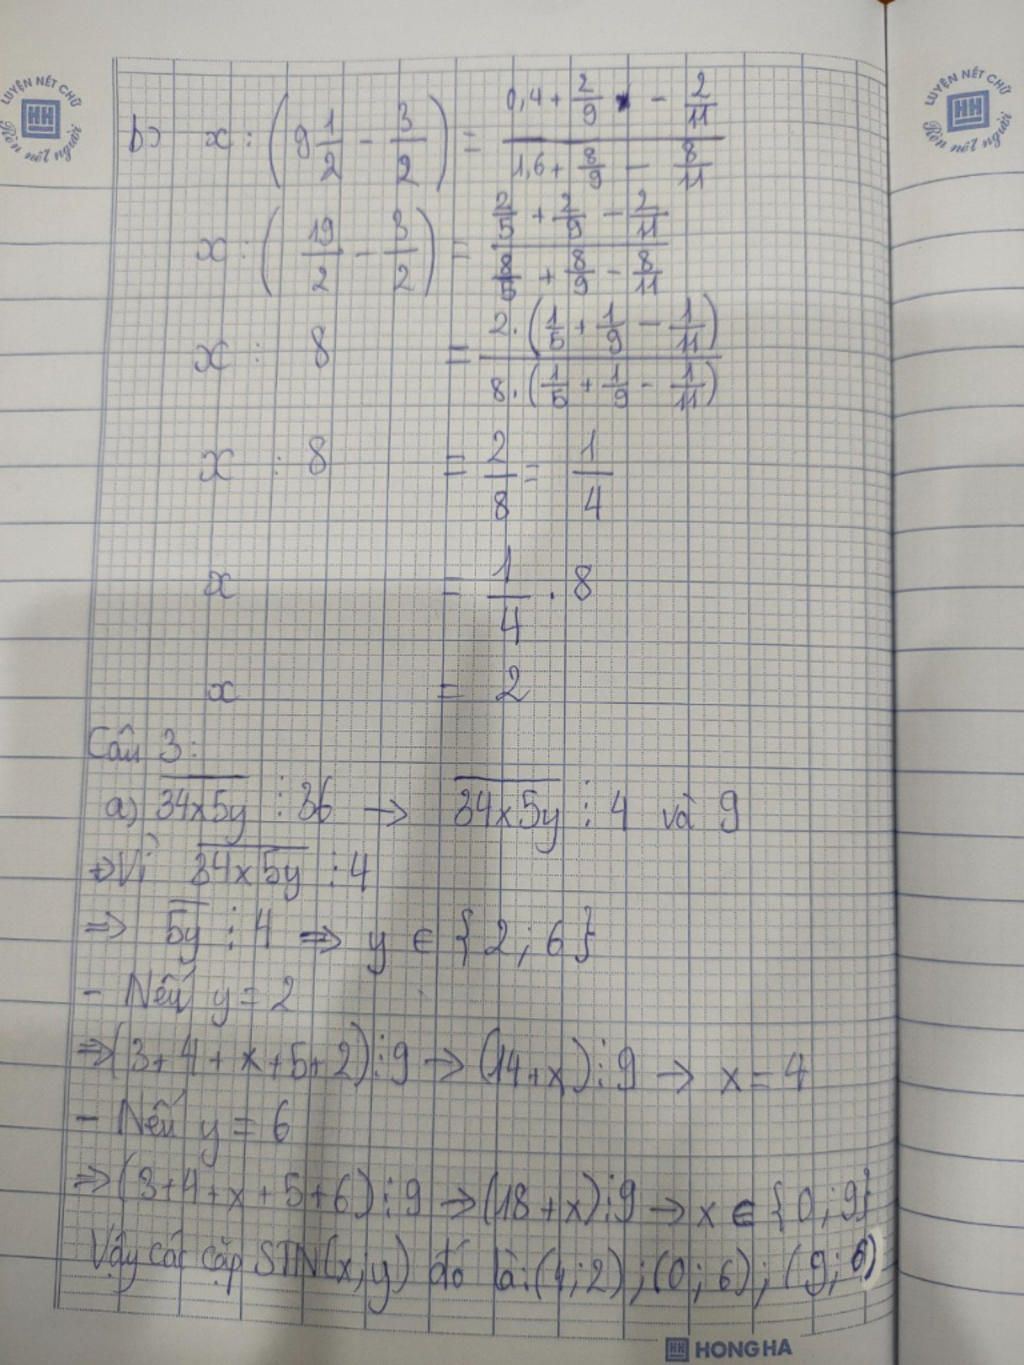 LUYỆN NÉT CHỮ
HH
Rèn nết người
LUYỆN NÉT CHỮ
HH
Rèn nết người
b) x : (9 1/2 - 3/2) = (0,4 + 2/9 - 2/11) / (1,6 + 8/9 - 8/11)
x : (19/2 - 3/2) = (2/5 + 2/9 - 2/11) / (8/5 + 8/9 - 8/11)
x : 8 = 2.(1/5 + 1/9 - 1/11) / 8.(1/5 + 1/9 - 1/11)
x : 8 = 2/8 = 1/4
x = 1/4 . 8
x = 2
Câu 3:
a) 34x5y ⋮ 36 → 34x5y ⋮ 4 và 9
→ Vì 34x5y ⋮ 4
⇒ 5y ⋮ 4 ⇒ y ∈ {2; 6}
- Nếu y = 2
⇒ (3+4+x+5+2) ⋮ 9 → (14+x) ⋮ 9 → x = 4
- Nếu y = 6
⇒ (3+4+x+5+6) ⋮ 9 → (18+x) ⋮ 9 → x ∈ {0; 9}
Vậy các cặp STN(x;y) đó là: (4;2); (0;6); (9;6)
HH HONG HA